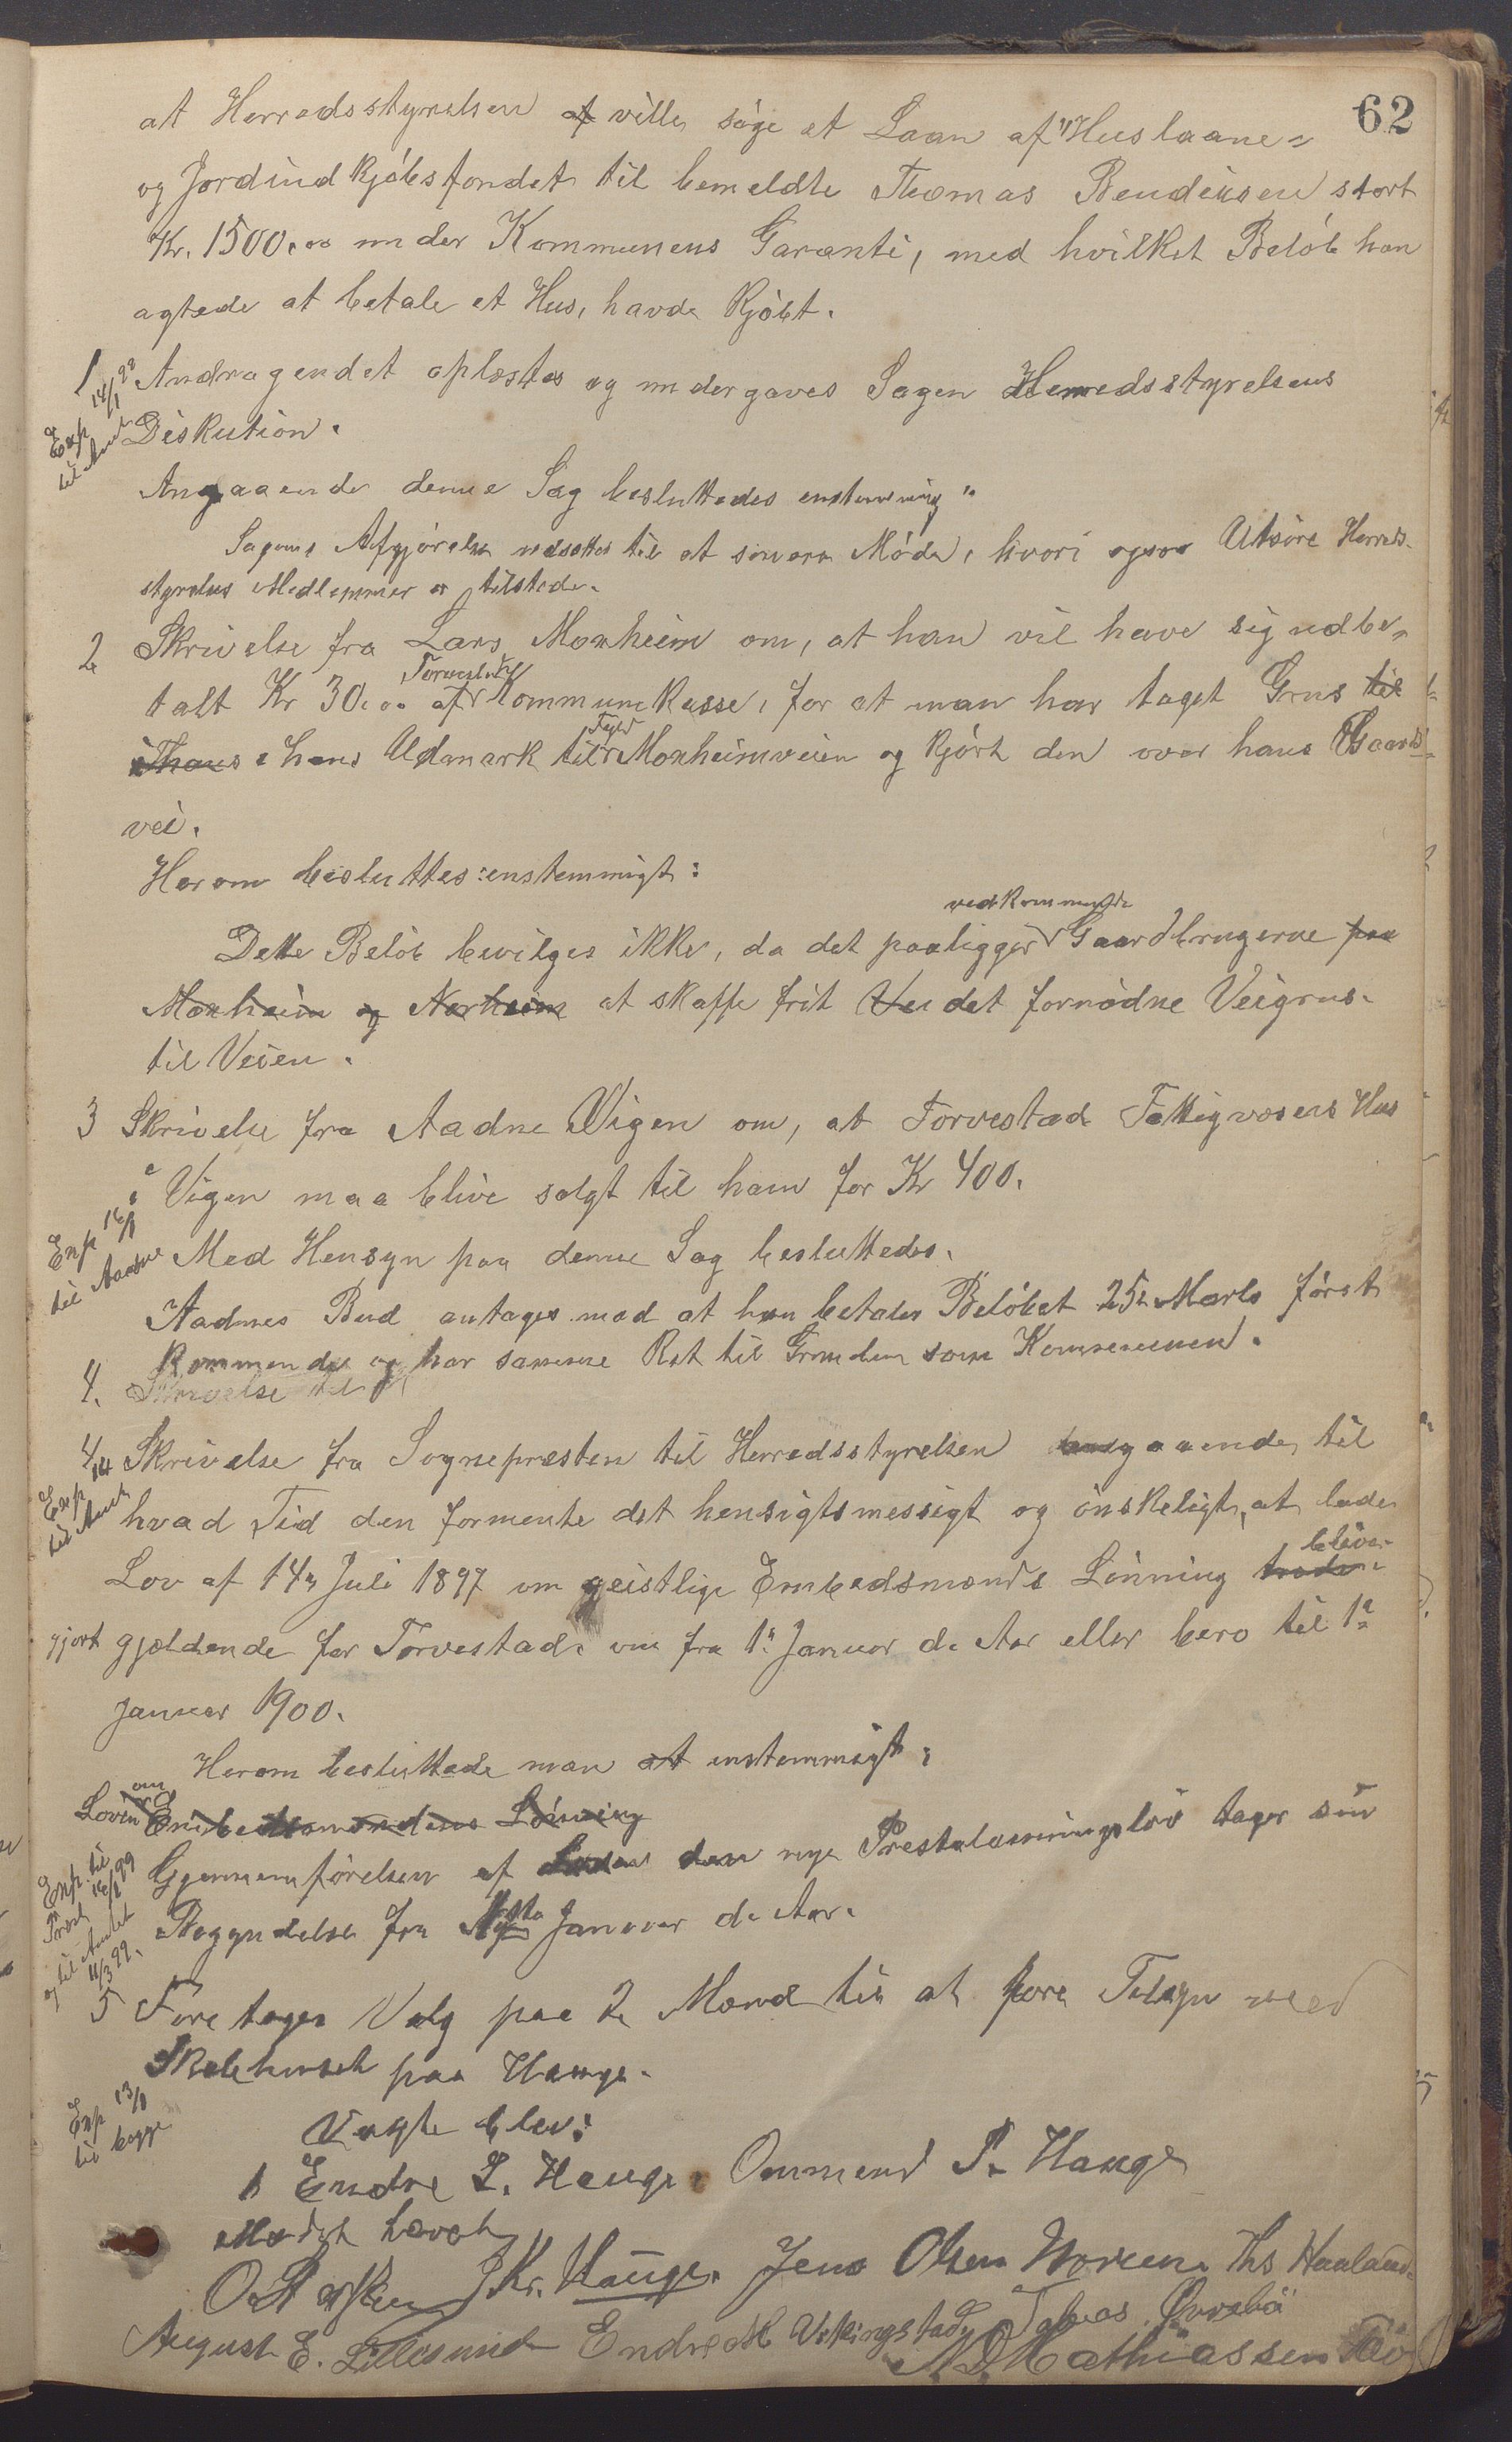 62
at Herredsstyrelsen at ville søge et Laan af "Huslaane-
og Jordindkjøbsfondet til bemeldte Thomas Bendiksen stort
Kr. 1500.00 under Kommunens Garanti, med hvilket Beløb han
agtede at betale et Hus, havde kjøbt.
1 Andragendet oplæstes og undergaves Sagen Herredsstyrelsens
Exp 14/1 99
til Amt
Diskution.
Angaaende denne Sag besluttedes enstemmig"
Sagens Afgjørelse udsættes til et senere Møde, hvori ogsaa Utsire Herreds-
styrelses Medlemmer er tilstede.
2 Skrivelse fra Lars Moxheim om, at han vil have sig udbe-
talt Kr 30.00 af Torvestad Kommunekasse, for at man har taget Grus til
i Thans i hans Udmark til Fyld Moxheimveien og kjørt den over hans Gaards-
vei.
Herom besluttes enstemmigt:
Dette Beløb bevilges ikke, da det paaligger vedkommende Gaardbrugerne paa
Moxheim og Norheim at skaffe frit Vei det fornødne Veigrus
til Veien.
3 Skrivelse fra Aadne Vigen om, at Torvestad Fattigvæsens Hus
i Vigen maa blive solgt til ham for Kr 400.
Exp 16/1
til Aadne
Med Hensyn paa denne Sag besluttedes.
Aadnes Bud antages mod at han betaler Beløbet 25. Marts først
kommende og har samme Ret til Grunden som Kommunen.
4. Skrivelse til
4 Skrivelse fra Sognepræsten til Herredsstyrelsen angaaende, til
Exp 14
til Amt
hvad Tid den formente det hensigtsmessigt og ønskeligt, at lade
Lov af 14. Juli 1897 om geistlige Embedsmænds Lønning træde blive
gjort gjældende for Torvestad. om fra 1. Januar d. Aar eller bero til 1.
Januar 1900.
Herom besluttede man at enstemmigt:
Loven om Embedsmændens Lønning
Exp. til
Prost 16/1 99
og til Amtet
11/3 99.
Gjennemførelsen af den nye Prestelønningslov tager sin
Begyndelse fra Januar d. Aar.
5 Foretages Valg paa 2 Mænd til at føre Tilsyn med
Skolehuset paa Hauge.
Exp 13/1
til begge
Valgte blev:
Endre L. Hauge. Ommund P. Hauge
Mødet hævet
J Kr. Hauge. Jens Olsen Ths Haaland.
August E. Lillesund Endre M Vikingstad, Tobias Ørrebø
A. D. Mathiassen